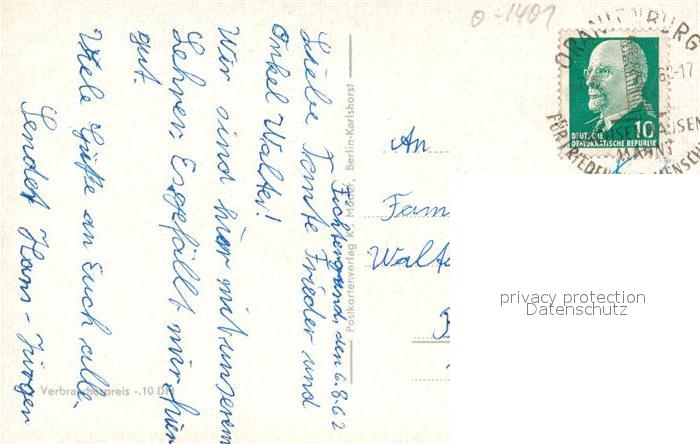 0-1401
ORANIENBURG
62-17
SACHSENHAUSEN
MAHNT
FÜR FRIEDEN MENSCH
10
DEUTSCHE
DEMOKRATISCHE REPUBLIK
Fichtengrund, den 6.8.62
Liebe Tante Frieder und
Onkel Walter!
Wir sind hier mit unserem
Lehrer. Es gefällt mir hier
gut.
Viele Grüße an Euch alle.
Sendet Hans-Jürgen
Verbraucherpreis -.10 DM
Postkartenverlag K. Möder, Berlin-Karlshorst
An
Fam
Walt
privacy protection
Datenschutz